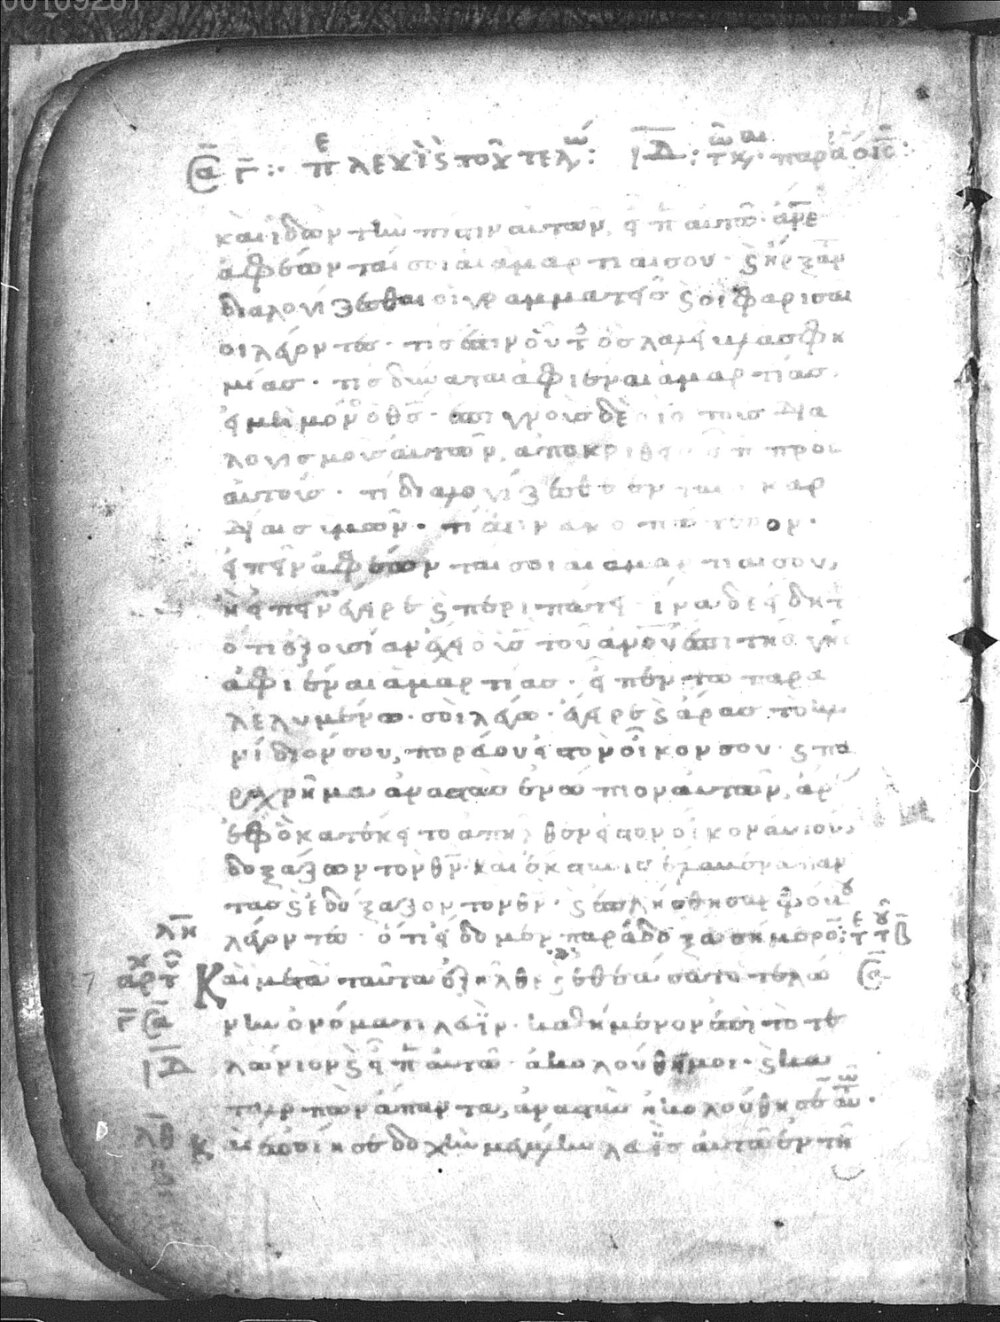 ΙΔ
καὶ ἰδὼν τὴν πίστιν αὐτῶν, εἶπ αὐτῶ· ἄνε
ἀφέωνταί σοι αἱ ἁμαρτίαι σου· ϗ ἤρξαν
διαλογίζεσθαι οἱ γραμματεῖς ϗ οἱ φαρισαι
οι λέγοντες· τίς ἐστιν οὗτ ὃς λαλεῖ βλασφη
μίας· τίς δύναται ἀφιέναι ἁμαρτίας
εἰ μὴ μόνος ὁ θς· ἐπιγνοὺς δὲ ὁ ις τοὺς δια
λογισμοὺς αὐτῶν, ἀποκριθεὶς εἶπ πρὸς
αὐτούς· τί διαλογίζεσθε ἐν ταῖς καρ
δίαις ὑμῶν· τί ἐστιν εὐκοπώτερον·
εἰπεῖν ἀφέωνταί σοι αἱ ἁμαρτίαι σου,
ἢ εἰπεῖν ἔγειρε ϗ περιπάτει· ἵνα δὲ εἰδῆτ
ὅτι ἐξουσίαν ἔχει ὁ υς τοῦ ανου ἐπὶ τῆς γῆς
ἀφιέναι ἁμαρτίας· εἶπεν τῶ παρα
λελυμένω· σοὶ λέγω· ἔγειρε ϗ ἄρας τὸ κλι
νίδιόν σου, πορεύου εἰς τὸν οἶκόν σου· ϗ πα
ραχρῆμα ἀναστὰς ἐνώπιον αὐτῶν, ἄρ
ἐφ ὃ κατέκειτο ἀπῆλθεν εἰς τὸν οἶκον αὐτοῦ,
δοξάζων τὸν θν· καὶ ἔκστασις ἔλαβεν ἅπαν
τας ϗ ἐδόξαζον τὸν θν· ϗ ἐπλήσθησαν φόβου
λέγοντες· ὅτι εἴδομεν παράδοξα σήμερον:
Καὶ μετὰ ταῦτα ἐξῆλθεν ϗ ἐθεάσατο τελώ
νην ὀνόματι λευΐν· καθήμενον ἐπὶ τὸ τε
λώνιον ϗ εἶπ αὐτῶ· ἀκολούθει μοι· ϗ κα
ταλιπὼν ἅπαντα, ἀναστὰς ἠκολούθησεν αὐτῶ·
Καὶ ἐποίησε δοχὴν μεγάλην λευῒς αὐτῶ ἐν τῆ